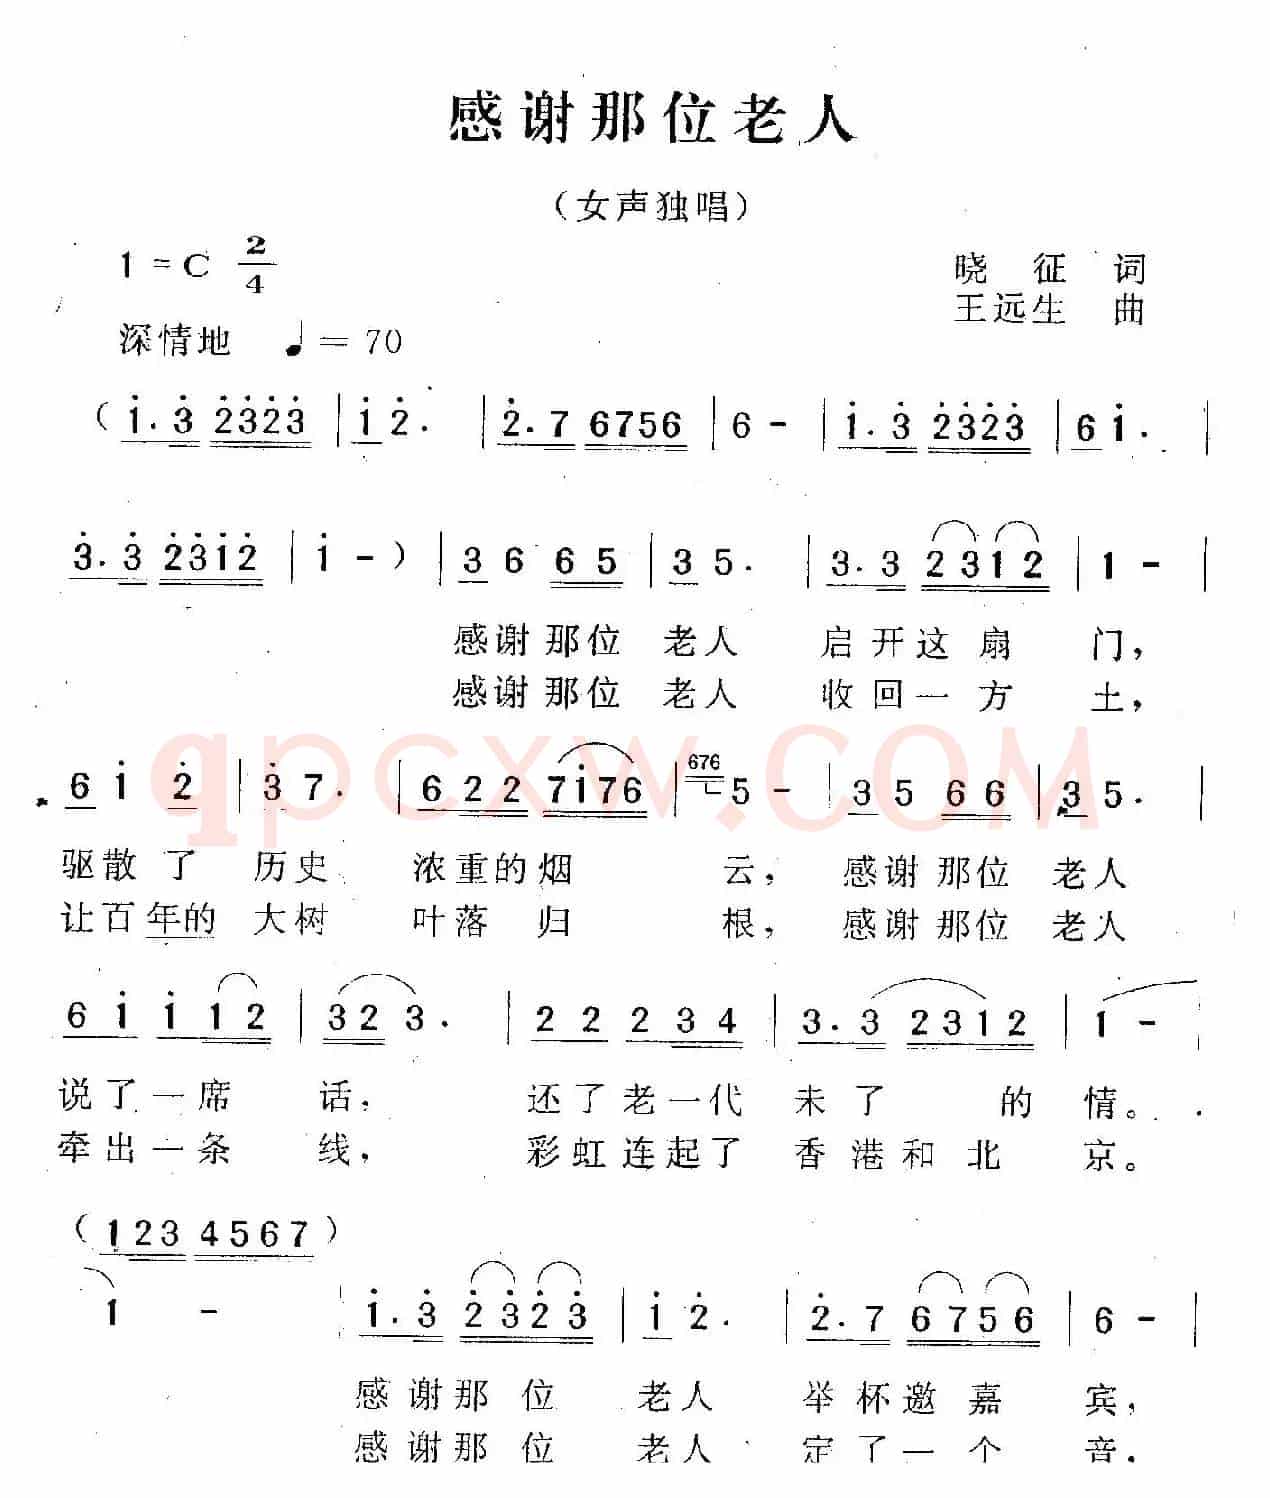 感谢那位老人
（女声独唱）
1=C 2/4
晓 征 词
深情地 ♩=70
王远生 曲
( 1̇. 3̇ 2̇3̇2̇3̇ | 1̇ 2̇. | 2̇. 7 6756 | 6 - | 1̇. 3̇ 2̇3̇2̇3̇ | 6 1̇. |
3̇. 3̇ 2̇3̇1̇2̇ | 1̇ - ) | 3 6 6 5 | 3 5. | 3. 3 2 3 1 2 | 1 - |
感谢那位 老人 启开这扇 门，
感谢那位 老人 收回一方 土，
6 1̇ 2̇ | 3̇ 7. | 6 2 2 7 1̇ 7 6 | 676 5 - | 3 5 6 6 | 3 5. |
驱散了 历史 浓重的烟 云， 感谢那位 老人
让百年的 大树 叶落归 根， 感谢那位 老人
6 1̇ 1̇ 1̇ 2̇ | 3 2 3. | 2 2 2 3 4 | 3. 3 2 3 1 2 | 1 - |
说了一席 话， 还了老一代 未了的 情。
牵出一条 线， 彩虹连起了 香港和北 京。
( 1 2 3 4 5 6 7 )
1 - | 1̇. 3̇ 2̇ 3̇ 2̇ 3̇ | 1̇ 2̇. | 2̇. 7 6 7 5 6 | 6 - |
感谢那位 老人 举杯邀嘉 宾，
感谢那位 老人 定了一个 音，
qpcxw.COM